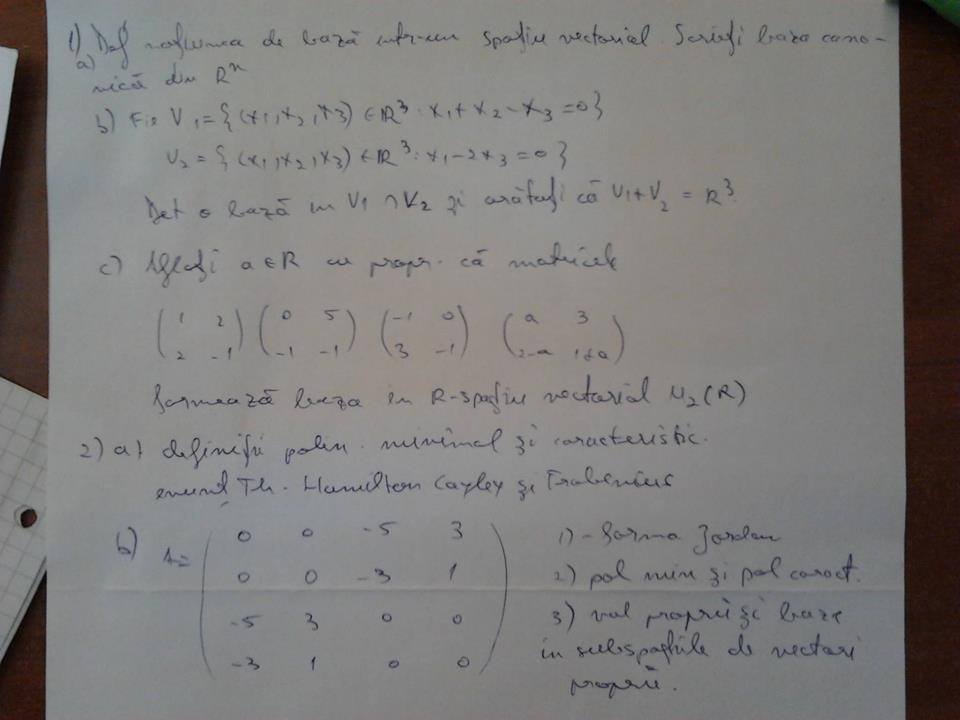 1) Def noțiunea de bază într-un spațiu vectorial. Scrieți baza cano-
a)
nică din Rⁿ
b) Fie V₁ = {(x₁,x₂,x₃) ∈ R³ : x₁ + x₂ - x₃ = 0}
V₂ = {(x₁,x₂,x₃) ∈ R³ : x₁ - 2x₃ = 0}
Det o bază în V₁ ∩ V₂ și arătați că V₁+V₂ = R³.
c) Aflați a ∈ R cu propr. că matricele
(1 2) (0 5) (-1 0) (a 3)
(2 -1) (-1 -1) (3 -1) (2-a 1+a)
formează baza în R-spațiu vectorial M₂(R)
2) a) definiții polin. minimal și caracteristic.
enunț Th. Hamilton Cayley și Frobenius
b) A = (0 0 -5 3) 1) - forma Jordan
(0 0 -3 1) 2) pol min și pol caract.
(-5 3 0 0) 3) val proprii și baze
(-3 1 0 0) în subspațiile de vectori
proprii.